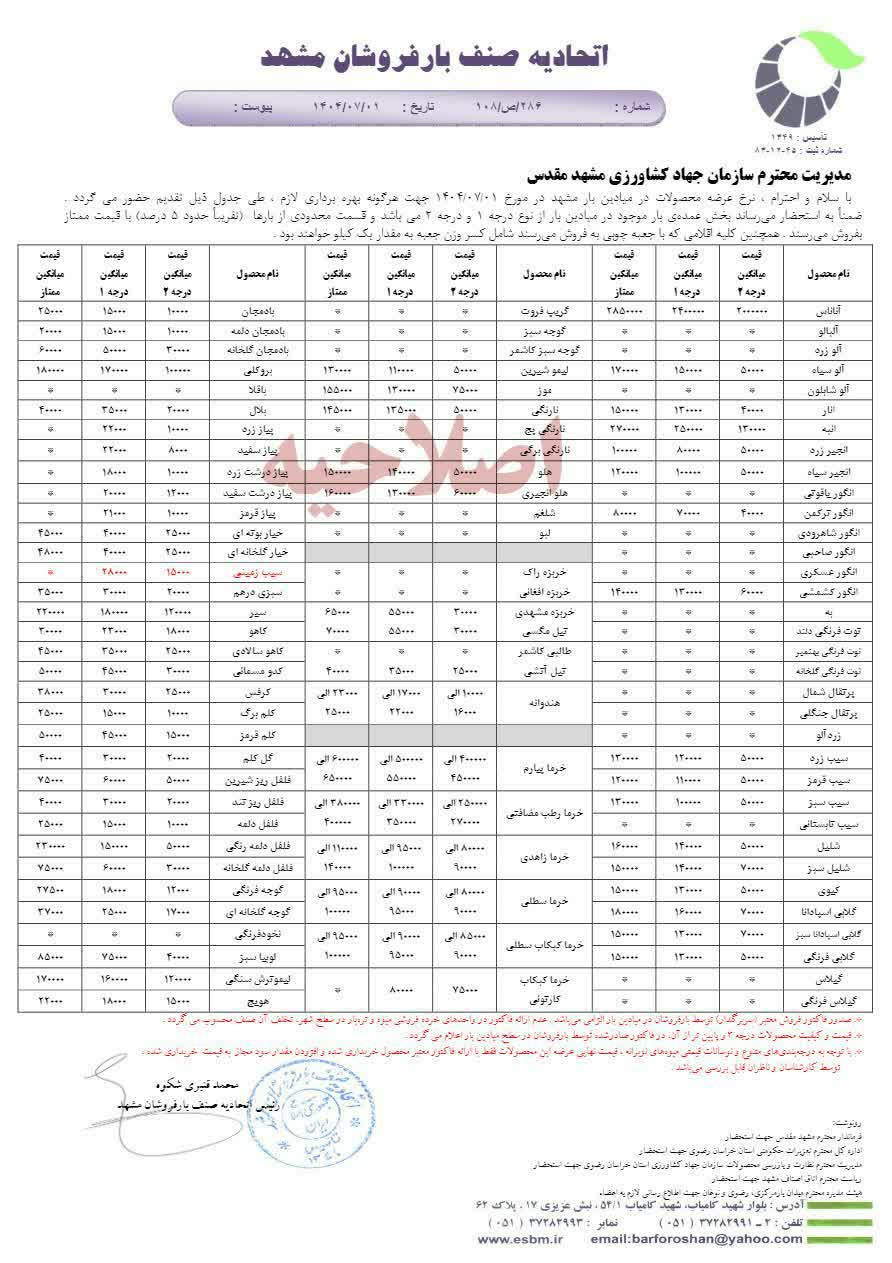 اتحادیه صنف بارفروشان مشهد
شماره : ۱۰۸/ص/۲۸۶ تاریخ : ۱۴۰۴/۰۷/۰۱ پیوست :
تأسیس : ۱۳۴۹
شماره ثبت : ۴۵-۱۲-۸۳
مدیریت محترم سازمان جهاد کشاورزی مشهد مقدس
با سلام و احترام ، نرخ عرضه محصولات در میادین بار مشهد در مورخ ۱۴۰۴/۰۷/۰۱ جهت هرگونه بهره برداری لازم ، طی جدول ذیل تقدیم حضور می گردد .
ضمناً به استحضار می‌رساند بخش عمده‌ی بار موجود در میادین بار از نوع درجه ۱ و درجه ۲ می باشد و قسمت محدودی از بارها (تقریباً حدود ۵ درصد) با قیمت ممتاز
بفروش می‌رسند . همچنین کلیه اقلامی که با جعبه چوبی به فروش می‌رسند شامل کسر وزن جعبه به مقدار یک کیلو خواهند بود .
نام محصول قیمت میانگین درجه ۲ قیمت میانگین درجه ۱ قیمت میانگین ممتاز نام محصول قیمت میانگین درجه ۲ قیمت میانگین درجه ۱ قیمت میانگین ممتاز نام محصول قیمت میانگین درجه ۲ قیمت میانگین درجه ۱ قیمت میانگین ممتاز
آناناس ۲۰۰۰۰۰۰ ۲۴۰۰۰۰۰ ۲۸۵۰۰۰۰ گریپ فروت * * * بادمجان ۱۰۰۰۰ ۱۵۰۰۰ ۲۵۰۰۰
آلبالو * * * گوجه سبز * * * بادمجان دلمه ۱۰۰۰۰ ۱۵۰۰۰ ۲۰۰۰۰
آلو زرد * * * گوجه سبز کاشمر * * * بادمجان گلخانه ۳۰۰۰۰ ۵۰۰۰۰ ۶۰۰۰۰
آلو سیاه ۵۰۰۰۰ ۱۵۰۰۰۰ ۱۷۰۰۰۰ لیمو شیرین ۵۰۰۰۰ ۱۱۰۰۰۰ ۱۳۰۰۰۰ بروکلی ۱۰۰۰۰۰ ۱۷۰۰۰۰ ۱۸۰۰۰۰
آلو شابلون * * * موز ۷۵۰۰۰ ۱۳۰۰۰۰ ۱۵۵۰۰۰ باقلا * * *
انار ۴۰۰۰۰ ۱۳۰۰۰۰ ۱۵۰۰۰۰ نارنگی ۵۰۰۰۰ ۱۳۵۰۰۰ ۱۴۵۰۰۰ بلال ۲۰۰۰۰ ۳۵۰۰۰ ۴۰۰۰۰
انبه ۱۳۰۰۰۰ ۲۵۰۰۰۰ ۲۷۰۰۰۰ نارنگی پیج * * * پیاز زرد ۱۰۰۰۰ ۲۲۰۰۰ *
انجیر زرد ۵۰۰۰۰ ۸۰۰۰۰ ۱۰۰۰۰۰ نارنگی برگی * * * پیاز سفید ۸۰۰۰ ۲۲۰۰۰ *
انجیر سیاه ۵۰۰۰۰ ۱۰۰۰۰۰ ۱۲۰۰۰۰ هلو ۵۰۰۰۰ ۱۴۰۰۰۰ ۱۵۰۰۰۰ پیاز درشت زرد ۱۰۰۰۰ ۱۸۰۰۰ *
انگور یاقوتی * * * هلو انجیری ۶۰۰۰۰ ۱۳۰۰۰۰ ۱۶۰۰۰۰ پیاز درشت سفید ۱۲۰۰۰ ۲۰۰۰۰ *
انگور ترکمن ۴۰۰۰۰ ۷۰۰۰۰ ۸۰۰۰۰ شلغم * * * پیاز قرمز ۱۰۰۰۰ ۲۱۰۰۰ *
انگور شاهرودی * * * لبو * * * خیار بوته ای ۲۵۰۰۰ ۴۰۰۰۰ ۴۵۰۰۰
انگور صاحبی * * * خیار گلخانه ای ۲۵۰۰۰ ۴۰۰۰۰ ۴۸۰۰۰
انگور عسکری * * * خربزه راک * * * سیب زمینی ۱۵۰۰۰ ۲۸۰۰۰ *
انگور کشمشی ۶۰۰۰۰ ۱۳۰۰۰۰ ۱۴۰۰۰۰ خربزه افغانی * * * سبزی درهم ۲۰۰۰۰ ۳۰۰۰۰ ۳۵۰۰۰
به * * * خربزه مشهدی ۳۰۰۰۰ ۵۵۰۰۰ ۶۵۰۰۰ سیر ۱۲۰۰۰۰ ۱۸۰۰۰۰ ۲۲۰۰۰۰
توت فرنگی دلند * * * تیل مگسی ۳۰۰۰۰ ۵۵۰۰۰ ۷۰۰۰۰ کاهو ۱۸۰۰۰ ۲۳۰۰۰ ۳۰۰۰۰
توت فرنگی بهنمیر * * * طالبی کاشمر * * * کاهو سالادی ۲۵۰۰۰ ۳۵۰۰۰ ۴۵۰۰۰
توت فرنگی گلخانه * * * تیل آتشی ۲۵۰۰۰ ۳۵۰۰۰ ۴۰۰۰۰ کدو مسمائی ۳۰۰۰۰ ۴۵۰۰۰ ۵۰۰۰۰
پرتقال شمال * * * هندوانه ۱۰۰۰۰ الی ۱۶۰۰۰ ۱۷۰۰۰ الی ۲۲۰۰۰ ۲۳۰۰۰ الی ۲۵۰۰۰ کرفس ۲۵۰۰۰ ۳۰۰۰۰ ۳۸۰۰۰
پرتقال جنگلی * * * کلم برگ ۱۰۰۰۰ ۱۵۰۰۰ ۲۵۰۰۰
زرد آلو * * * کلم قرمز ۱۵۰۰۰ ۴۵۰۰۰ ۵۰۰۰۰
سیب زرد ۵۰۰۰۰ ۱۲۰۰۰۰ ۱۳۰۰۰۰ خرما پیارم ۴۰۰۰۰۰ الی ۴۵۰۰۰۰ ۵۰۰۰۰۰ الی ۵۵۰۰۰۰ ۶۰۰۰۰۰ الی ۶۵۰۰۰۰ گل کلم ۲۰۰۰۰ ۳۰۰۰۰ ۴۰۰۰۰
سیب قرمز ۵۰۰۰۰ ۱۱۰۰۰۰ ۱۲۰۰۰۰ فلفل ریز شیرین ۵۰۰۰۰ ۶۰۰۰۰ ۷۵۰۰۰
سیب سبز ۵۰۰۰۰ ۱۰۰۰۰۰ ۱۳۰۰۰۰ خرما رطب مضافتی ۲۵۰۰۰۰ الی ۲۷۰۰۰۰ ۳۳۰۰۰۰ الی ۳۵۰۰۰۰ ۳۸۰۰۰۰ الی ۴۰۰۰۰۰ فلفل ریز تند ۲۰۰۰۰ ۳۰۰۰۰ ۴۰۰۰۰
سیب تابستانی * * * فلفل دلمه ۱۰۰۰۰ ۱۵۰۰۰ ۲۵۰۰۰
شلیل ۵۰۰۰۰ ۱۴۰۰۰۰ ۱۶۰۰۰۰ خرما زاهدی ۸۰۰۰۰ الی ۹۰۰۰۰ ۹۵۰۰۰ الی ۱۰۰۰۰۰ ۱۱۰۰۰۰ الی ۱۴۰۰۰۰ فلفل دلمه رنگی ۵۰۰۰۰ ۱۵۰۰۰۰ ۲۳۰۰۰۰
شلیل سبز ۷۰۰۰۰ ۱۴۰۰۰۰ ۱۵۰۰۰۰ فلفل دلمه گلخانه ۳۰۰۰۰ ۶۰۰۰۰ ۷۵۰۰۰
کیوی ۵۰۰۰۰ ۱۳۰۰۰۰ ۱۵۰۰۰۰ خرما سطلی ۸۰۰۰۰ الی ۹۰۰۰۰ ۹۰۰۰۰ الی ۹۵۰۰۰ ۹۵۰۰۰ الی ۱۰۰۰۰۰ گوجه فرنگی ۱۲۰۰۰ ۱۸۰۰۰ ۲۷۵۰۰
گلابی اسپادانا ۷۰۰۰۰ ۱۶۰۰۰۰ ۱۸۰۰۰۰ گوجه گلخانه ای ۱۷۰۰۰ ۲۵۰۰۰ ۳۷۰۰۰
گلابی اسپادانا سبز ۷۰۰۰۰ ۱۳۰۰۰۰ ۱۵۰۰۰۰ خرما کبکاب سطلی ۸۵۰۰۰ الی ۹۰۰۰۰ ۹۰۰۰۰ الی ۹۵۰۰۰ ۹۵۰۰۰ الی ۱۰۰۰۰۰ نخودفرنگی * * *
گلابی فرنگی ۵۰۰۰۰ ۱۳۰۰۰۰ ۱۵۰۰۰۰ لوبیا سبز ۴۰۰۰۰ ۷۵۰۰۰ ۸۵۰۰۰
گیلاس * * * خرما کبکاب کارتونی ۷۵۰۰۰ ۸۰۰۰۰ * لیموترش سنگی ۱۲۰۰۰۰ ۱۶۰۰۰۰ ۱۷۰۰۰۰
گیلاس فرنگی * * * هویج ۱۵۰۰۰ ۱۸۰۰۰ ۲۲۰۰۰
اصلاحیه
* صدور فاکتور فروش معتبر (سربرگدار) توسط بارفروشان در میادین بار الزامی می‌باشد . عدم ارائه فاکتور در واحدهای خرده فروشی میوه و تره‌بار در سطح شهر، تخلف آن صنف محسوب می گردد .
* قیمت و کیفیت محصولات درجه ۳ و پایین تر از آن، در فاکتور صادرشده توسط بارفروشان در سطح میادین بار اعلام می گردد .
* با توجه به درجه‌بندی‌های متنوع و نوسانات قیمتی میوه‌های نوبرانه ، قیمت نهایی عرضه این محصولات فقط با ارائه فاکتور معتبر محصول خریداری شده و افزودن مقدار سود مجاز به قیمت خریداری شده ،
توسط کارشناسان و ناظران قابل بررسی می‌باشد .
محمد قنبری شکوه
رئیس اتحادیه صنف بارفروشان مشهد
رونوشت:
فرماندار محترم مشهد مقدس جهت استحضار
اداره کل محترم تعزیرات حکومتی استان خراسان رضوی جهت استحضار
مدیریت محترم نظارت و بازرسی محصولات سازمان جهاد کشاورزی استان خراسان رضوی جهت استحضار
ریاست محترم اتاق اصناف مشهد جهت استحضار
هیئت مدیره محترم میدان بارمرکزی، رضوی و نوغان جهت اطلاع رسانی لازم به اعضاء
آدرس : بلوار شهید کامیاب، شهید کامیاب ۵۴/۱، نبش عزیزی ۱۷، پلاک ۶۲
تلفن : ۲ ـ ۳۷۲۸۲۹۹۱ ( ۰۵۱ ) نمابر : ۳۷۲۸۲۹۹۳ ( ۰۵۱ )
www.esbm.ir email:barforoshan@yahoo.com